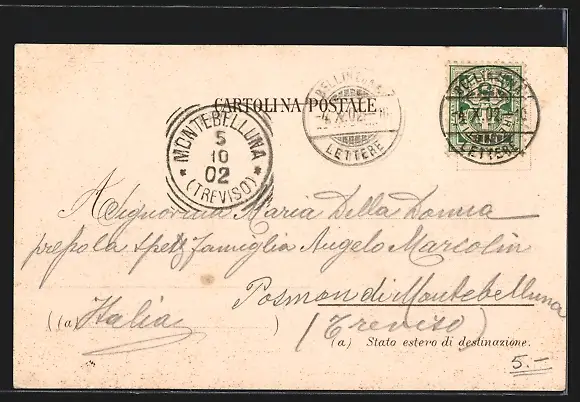 CARTOLINA POSTALE
BELLINZONA
4.X.02
LETTERE
BELLINZONA
4.X.02
LETTERE
MONTEBELLUNA
5
10
02
(TREVISO)
A Signorina Maria Della Donna
presso la Spett Famiglia Angelo Marcolin
Posmon di Montebelluna
((a) Italia ) (Treviso)
(a) Stato estero di destinazione.
5.-